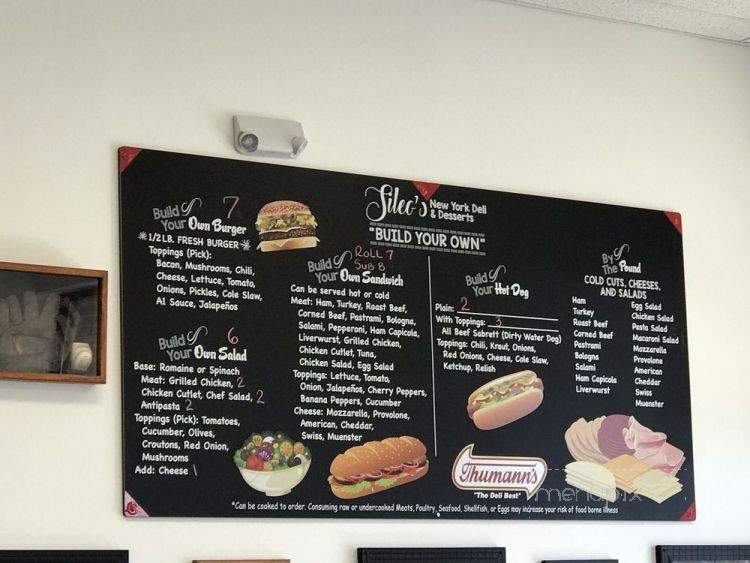 Sileo's New York Deli
& Desserts
"BUILD YOUR OWN"
Build
Your Own Burger 7
*1/2 LB. FRESH BURGER*
Toppings (Pick):
Bacon, Mushrooms, Chili,
Cheese, Lettuce, Tomato,
Onions, Pickles, Cole Slaw,
A1 Sauce, Jalapeños
Build 6
Your Own Salad
Base: Romaine or Spinach
Meat: Grilled Chicken, 2
Chicken Cutlet, Chef Salad, 2
Antipasta 2
Toppings (Pick): Tomatoes,
Cucumber, Olives,
Croutons, Red Onion,
Mushrooms
Add: Cheese 1
Roll 7
Sub 8
Build
Your Own Sandwich
Can be served hot or cold
Meat: Ham, Turkey, Roast Beef,
Corned Beef, Pastrami, Bologna,
Salami, Pepperoni, Ham Capicola,
Liverwurst, Grilled Chicken,
Chicken Cutlet, Tuna,
Chicken Salad, Egg Salad
Toppings: Lettuce, Tomato,
Onion, Jalapeños, Cherry Peppers,
Banana Peppers, Cucumber
Cheese: Mozzarella, Provolone,
American, Cheddar,
Swiss, Muenster
Build
Your Hot Dog
Plain: 2
With Toppings: 3
All Beef Sabrett (Dirty Water Dog)
Toppings: Chili, Kraut, Onions,
Red Onions, Cheese, Cole Slaw,
Ketchup, Relish
By
The Pound
COLD CUTS, CHEESES,
AND SALADS
Ham
Turkey
Roast Beef
Corned Beef
Pastrami
Bologna
Salami
Ham Capicola
Liverwurst
Egg Salad
Chicken Salad
Pasta Salad
Macaroni Salad
Mozzarella
Provolone
American
Cheddar
Swiss
Muenster
Thumann's
"The Deli Best"
menupix
*Can be cooked to order. Consuming raw or undercooked Meats, Poultry, Seafood, Shellfish, or Eggs may increase your risk of food borne illness